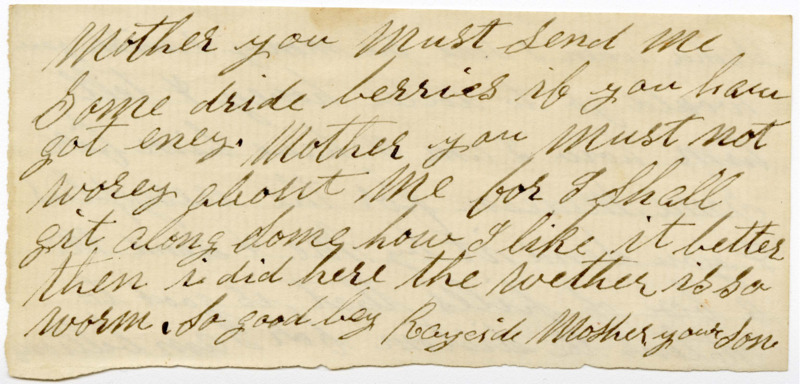 Mother you must send me
Some dride berries if you have
got eney. Mother you must not
worey about me for I shall
git along some how I like it better
then i did here the wether is so
worm. So good bey Mother your Son